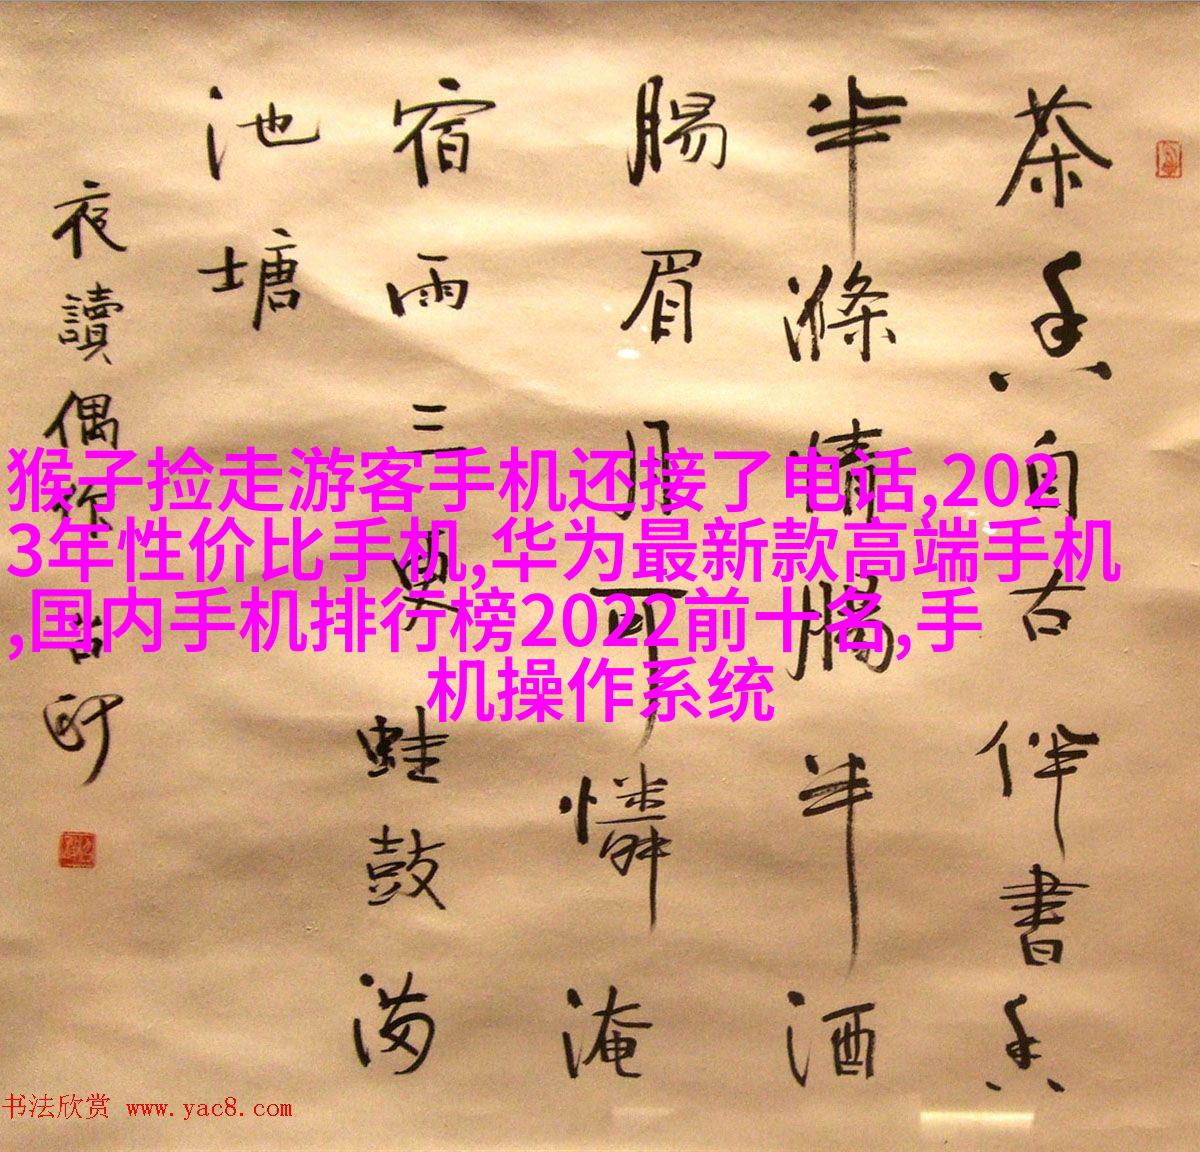 茶香自古伴書香
半滌情腸半酒
腸眉月可憐淹
宿雨三更蛙鼓满
池塘
夜讀偶作
猴子捡走游客手机还接了电话,202
3年性价比手机,华为最新款高端手机
,国内手机排行榜2022前十名,手
机操作系统
书法欣赏 www.yac8.com